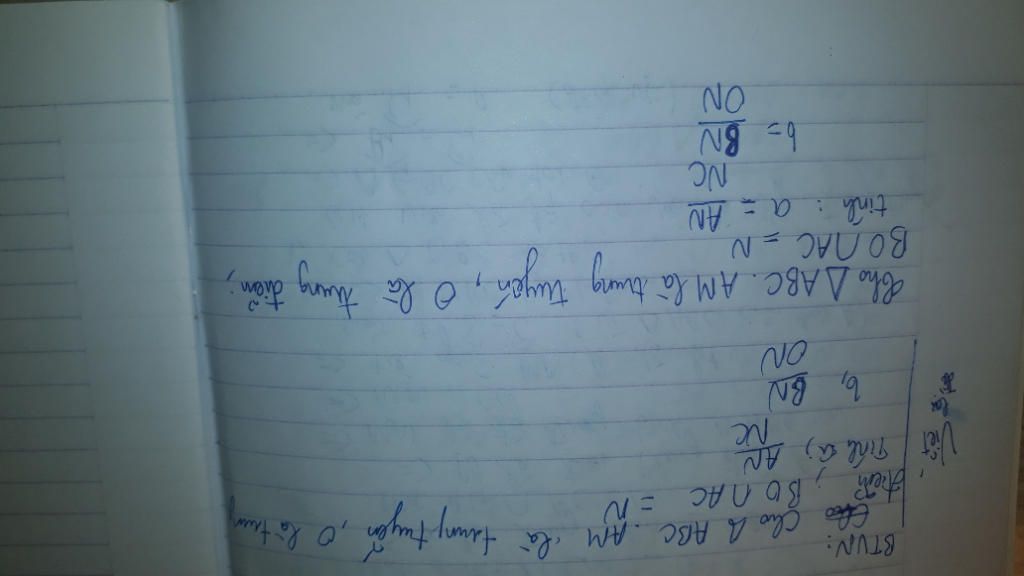 BTVN:
Cho Δ ABC. AM là trung tuyến, O là trung
điểm; BO ∩ AC = N
Tính a, AN/NC
b, BN/ON
Viết
lại
Cho Δ ABC. AM là trung tuyến, O là trung điểm;
BO ∩ AC = N
tính: a = AN/NC
b = BN/ON